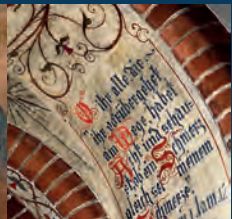 O ihr alle die
ihr vorübergehet
am Wege, habet
Acht und schau-
et, ob ein Schmerz
gleich sei meinem
Schmerze.